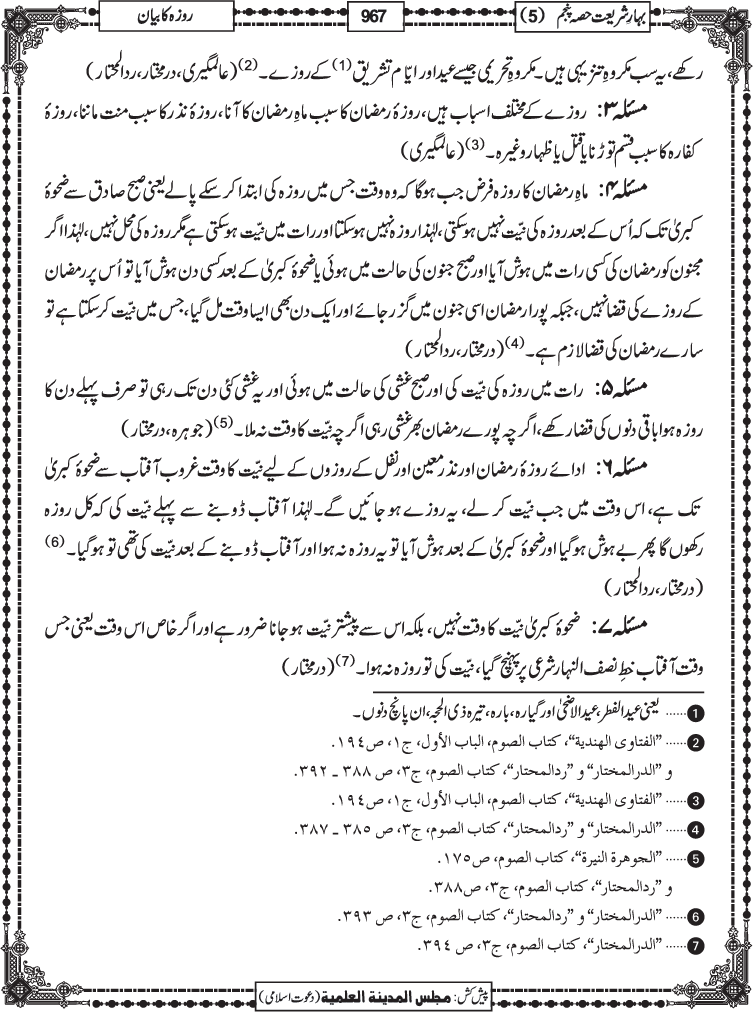 بہار شریعت حصہ پنجم (5)
967
روزہ کا بیان
رکھے، یہ سب مکروہِ تنزیہی ہیں۔ مکروہِ تحریمی جیسے عید اور ایّام تشریق (1) کے روزے۔ (2) (عالمگیری، درمختار، ردالمحتار)
مسئلہ ۳: روزے کے مختلف اسباب ہیں، روزۂ رمضان کا سبب ماہِ رمضان کا آنا، روزۂ نذر کا سبب منت ماننا، روزۂ
کفارہ کا سبب قسم توڑنا یا قتل یا ظہار وغیرہ۔ (3) (عالمگیری)
مسئلہ ۴: ماہِ رمضان کا روزہ فرض جب ہوگا کہ وہ وقت جس میں روزہ کی ابتدا کر سکے پا لے یعنی صبح صادق سے ضحوۂ
کبریٰ تک کہ اُس کے بعد روزہ کی نیّت نہیں ہوسکتی، لہٰذا روزہ نہیں ہوسکتا اور رات میں نیّت ہوسکتی ہے مگر روزہ کی محل نہیں، لہٰذا اگر
مجنون کو رمضان کی کسی رات میں ہوش آیا اور صبح جنون کی حالت میں ہوئی یا ضحوۂ کبریٰ کے بعد کسی دن ہوش آیا تو اُس پر رمضان
کے روزے کی قضا نہیں، جبکہ پورا رمضان اسی جنون میں گزر جائے اور ایک دن بھی ایسا وقت مل گیا، جس میں نیّت کرسکتا ہے تو
سارے رمضان کی قضا لازم ہے۔ (4) (درمختار، ردالمحتار)
مسئلہ ۵: رات میں روزہ کی نیّت کی اور صبح غشی کی حالت میں ہوئی اور یہ غشی کئی دن تک رہی تو صرف پہلے دن کا
روزہ ہوا باقی دنوں کی قضا رکھے، اگرچہ پورے رمضان بھر غشی رہی اگرچہ نیّت کا وقت نہ ملا۔ (5) (جوہرہ، درمختار)
مسئلہ ۶: ادائے روزۂ رمضان اور نذر معین اور نفل کے روزوں کے لیے نیّت کا وقت غروب آفتاب سے ضحوۂ کبریٰ
تک ہے، اس وقت میں جب نیّت کر لے، یہ روزے ہو جائیں گے۔ لہٰذا آفتاب ڈوبنے سے پہلے نیّت کی کہ کل روزہ
رکھوں گا پھر بے ہوش ہوگیا اور ضحوۂ کبریٰ کے بعد ہوش آیا تو یہ روزہ نہ ہوا اور آفتاب ڈوبنے کے بعد نیّت کی تھی تو ہوگیا۔ (6)
(درمختار، ردالمحتار)
مسئلہ ۷: ضحوۂ کبریٰ نیّت کا وقت نہیں، بلکہ اس سے پیشتر نیّت ہو جانا ضرور ہے اور اگر خاص اس وقت یعنی جس
وقت آفتاب خطِ نصف النہار شرعی پر پہنچ گیا، نیّت کی تو روزہ نہ ہوا۔ (7) (درمختار)
1 ...... یعنی عیدالفطر، عیدالاضحٰی اور گیارہ، بارہ، تیرہ ذی الحجہ، ان پانچ دنوں۔
2 ...... ”الفتاوى الهندية“، كتاب الصوم، الباب الأول، ج١، ص١٩٤.
و ”الدرالمختار“ و ”ردالمحتار“، كتاب الصوم، ج٣، ص ٣٨٨ ـ ٣٩٢.
3 ...... ”الفتاوى الهندية“، كتاب الصوم، الباب الأول، ج١، ص١٩٤.
4 ...... ”الدرالمختار“ و ”ردالمحتار“، كتاب الصوم، ج٣، ص ٣٨٥ ـ ٣٨٧.
5 ...... ”الجوهرة النيرة“، كتاب الصوم، ص١٧٥.
و ”ردالمحتار“، كتاب الصوم، ج٣، ص٣٨٨.
6 ...... ”الدرالمختار“ و ”ردالمحتار“، كتاب الصوم، ج٣، ص ٣٩٣.
7 ...... ”الدرالمختار“، كتاب الصوم، ج٣، ص ٣٩٤.
پیش کش: مجلس المدینة العلمیة (دعوت اسلامی)